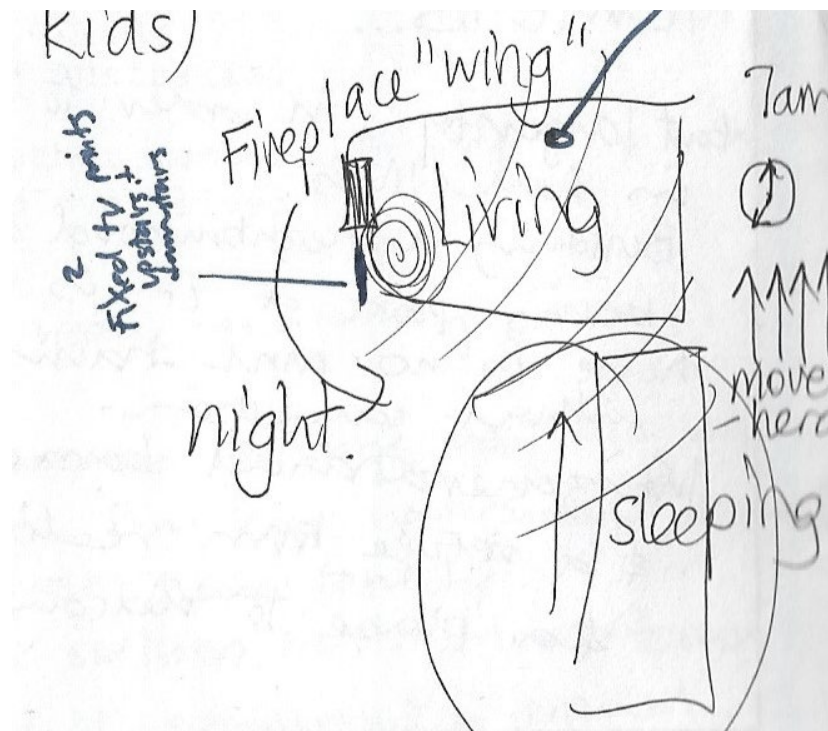 Kids)
Fireplace "wing"
7am
2
fixed tv points
upstairs +
downstairs
Living
night.
move
sleeping